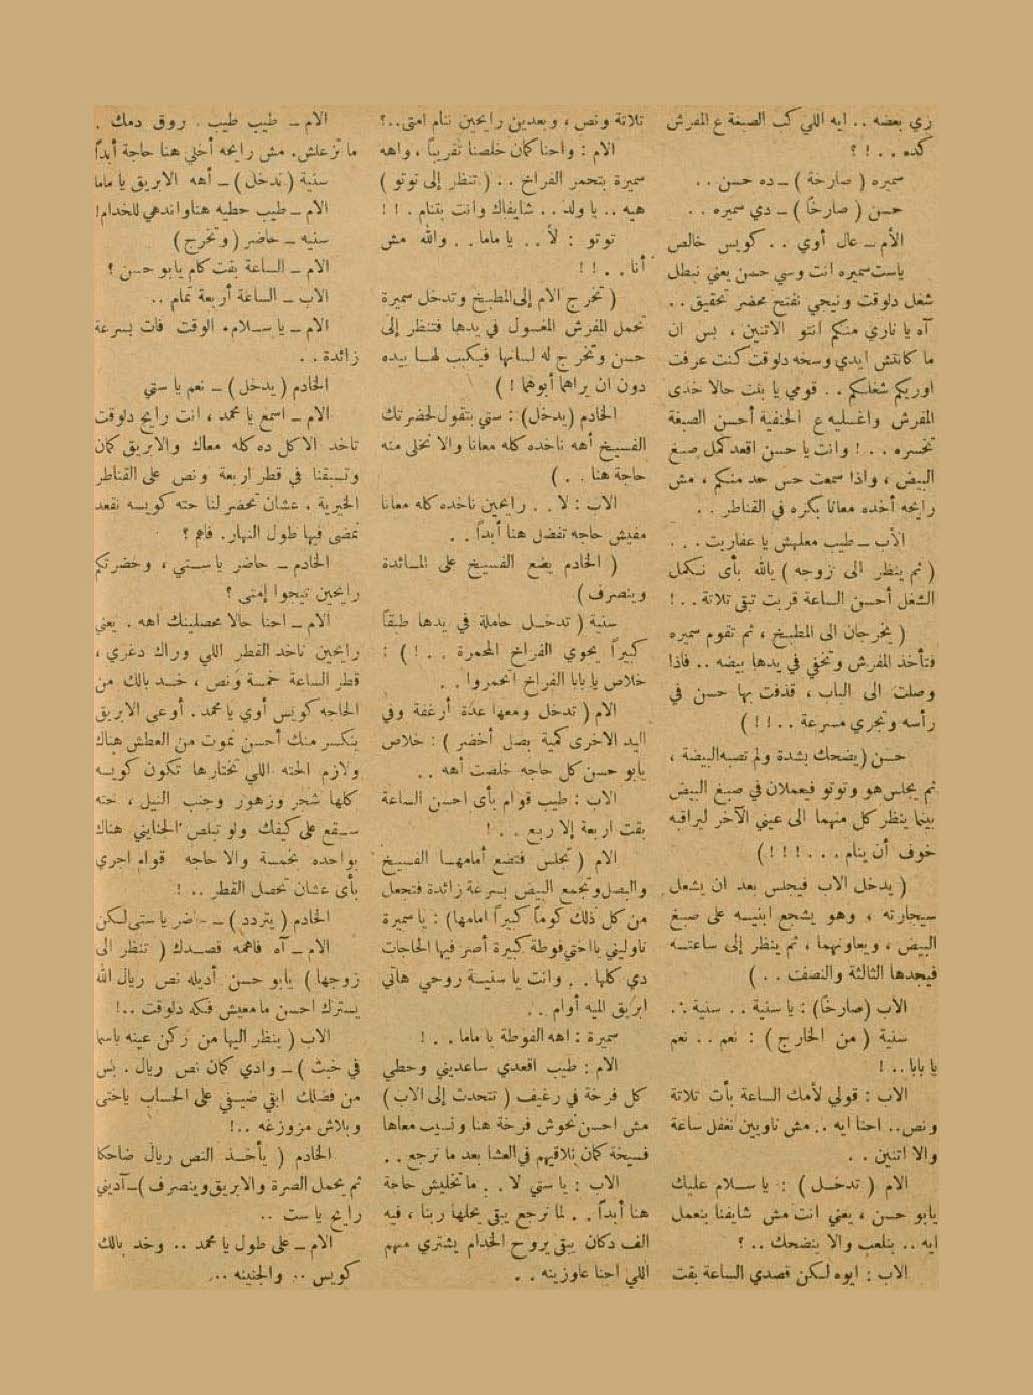 زي بعضه .. ايه اللي كب الصبغة ع المفرش
كده . . ! ؟
سميره ( صارخة ) ــ ده حسن . .
حسن ( صارخاً ) ــ دي سميره . .
الأم ــ عال أوي . . كويس خالص
ياست سميره انت وسي حسن يعني نبطل
شغل دلوقت ونيجي نفتح محضر تحقيق . .
آه يا ناري منكم انتو الاتنين ، بس ان
ما كانتش ايدي وسخه دلوقت كنت عرفت
اوريكم شغلكم . . قومي يا بنت حالا خدى
المفرش واغسليه ع الحنفية أحسن الصبغة
تخسره . . ! وانت يا حسن اقعد كمل صبغ
البيض ، واذا سمعت حس حد منكم ، مش
رايحه أخده معانا بكره في القناطر . .
الأب ــ طيب معلهش يا عفاريت . . .
( ثم ينظر الى زوجه ) يالله بأى نكمل
الشغل أحسن الساعة قربت تبقى تلاتة . . !
( يخرجان الى المطبخ ، ثم تقوم سميره
فتأخذ المفرش وتخفي في يدها بيضه .. فاذا
وصلت الى الباب ، قذفت بها حسن في
رأسه وتجري مسرعة . . ! ! )
حسن ( يضحك بشدة ولم تصبه البيضة ،
ثم يجلس هو وتوتو فيعملان في صبغ البيض
بينما ينظر كل منهما الى عيني الآخر ليراقبه
خوف أن ينام . . . ! ! ! )
( يدخل الاب فيجلس بعد ان يشعل
سيجارته ، وهو يشجع ابنيه على صبغ
البيض ، ويعاونهما ، ثم ينظر إلى ساعته
فيجدها الثالثة والنصف . . )
الاب ( صارخاً ) : يا سنية . . سنية . .
سنية ( من الخارج ) : نعم . . نعم
يا بابا . . !
الاب : قولي لأمك الساعة بأت تلاتة
ونص .. احنا ايه .. مش ناويين نغفل ساعة
والا اتنين . .
الام ( تدخل ) : يا سلام عليك
يابو حسن ، يعني انت مش شايفنا بنعمل
ايه .. بنلعب والا بنضحك .. ؟
الاب : ايوه لكن قصدي الساعة بقت
تلاتة ونص ، وبعدين رايحين ننام امتى .. ؟
الام : واحنا كمان خلصنا تقريباً ، واهه
سميرة بتحمر الفراخ . . ( تنظر إلى توتو )
هيه .. يا ولد .. شايفاك وانت بتنام . ! !
توتو : لأ . . يا ماما . . والله مش
أنا . . ! !
( تخرج الام إلى المطبخ وتدخل سميرة
تحمل المفرش المغسول في يدها فتنظر إلى
حسن وتخرج له لسانها فيكبب لها بيده
دون ان يراهما أبوهما ! )
الخادم ( يدخل ) : ستي بتقول لحضرتك
الفسيخ أهه ناخده كله معانا والا نخلى منه
حاجة هنا . . )
الاب : لا . . رايحين ناخده كله معانا
مفيش حاجه تفضل هنا أبداً . .
( الخادم يضع الفسيخ على المائدة
وينصرف )
سنية ( تدخل حاملة في يدها طبقاً
كبيراً يحوي الفراخ المحمرة . . ! ) :
خلاص يا بابا الفراخ اتحمروا . .
الام ( تدخل ومعها عدة أرغفة وفي
اليد الاخرى كمية بصل أخضر ) : خلاص
يابو حسن كل حاجه خلصت أهه . .
الاب : طيب قوام بأى احسن الساعة
بقت اربعة إلا ربع . . !
الام ( تجلس فتضع أمامها الفسيخ
والبصل وتجمع البيض بسرعة زائدة فتجعل
من كل ذلك كوماً كبيراً امامها ) : يا سميرة
ناوليني يا اختي فوطة كبيرة أصر فيها الحاجات
دي كلها . . وانت يا سنية روحي هاتي
ابريق الميه أوام . .
سميرة : اهه الفوطة يا ماما . . !
الام : طيب اقعدي ساعديني وحطي
كل فرخة في رغيف ( تتحدث إلى الاب )
مش احسن نحوش فرخة هنا ونسيب معاها
فسيخة كمان نلاقيهم في العشا بعد ما نرجع . .
الاب : يا ستي لا . . ما تخليش حاجة
هنا أبداً . . لما نرجع يبقى يحلها ربنا ، فيه
الف دكان يبقى يروح الخدام يشتري منهم
اللي احنا عاوزينه . .
الام ــ طيب طيب . روق دمك .
ما تزعلش. مش رايحه أخلي هنا حاجة أبداً
سنية ( تدخل ) ــ أهه الابريق يا ماما
الام ــ طيب حطيه هنا واندهي للخدام !
سنيه ــ حاضر ( وتخرج )
الام ــ الساعة بقت كام يابو حسن ؟
الاب ــ الساعة أربعة تمام . .
الام ــ يا سلام، الوقت فات بسرعة
زائدة . .
الخادم ( يدخل ) ــ نعم يا ستي
الام ــ اسمع يا محمد ، انت رايح دلوقت
تاخد الاكل ده كله معاك والابريق كمان
وتسبقنا في قطر اربعة ونص على القناطر
الخيرية . عشان تحضر لنا حته كويسه نقعد
نمضى فيها طول النهار. فاهم ؟
الخادم ــ حاضر يا ستي ، وحضرتكم
رايحين تيجوا إمتى ؟
الام ــ احنا حالا محصلينك اهه . يعني
رايحين ناخد القطر اللي وراك دغري ،
قطر الساعة خمسة ونص ، خد بالك من
الحاجه كويس أوي يا محمد . أوعى الابريق
ينكسر منك أحسن نموت من العطش هناك
ولازم الحته اللي تختارها تكون كويسه
كلها شجر وزهور وجنب النيل ، حته
سقع على كيفك ولو تبلص الجنايني هناك
بواحده بخمسة والا حاجه قوام اجري
بأى عشان تحصل القطر .. !
الخادم ( يتردد ) ــ حاضر يا ستى لكن
الام ــ آه فاهمه قصدك ( تنظر الى
زوجها ) يابو حسن أديله نص ريال الله
يسترك احسن مامعيش فكه دلوقت .. !
الاب ( ينظر اليها من ركن عينه باسما
في خبث ) ــ وادي كمان نص ريال . بس
من فضلك ابقي ضيفي على الحساب ياختى
وبلاش مزوزغه .. !
الخادم ( يأخذ النص ريال ضاحكا
ثم يحمل الصرة والابريق وينصرف ) ــ آديني
رايح يا ست ..
الام ــ على طول يا محمد .. وخد بالك
كويس .. والجنينه ..